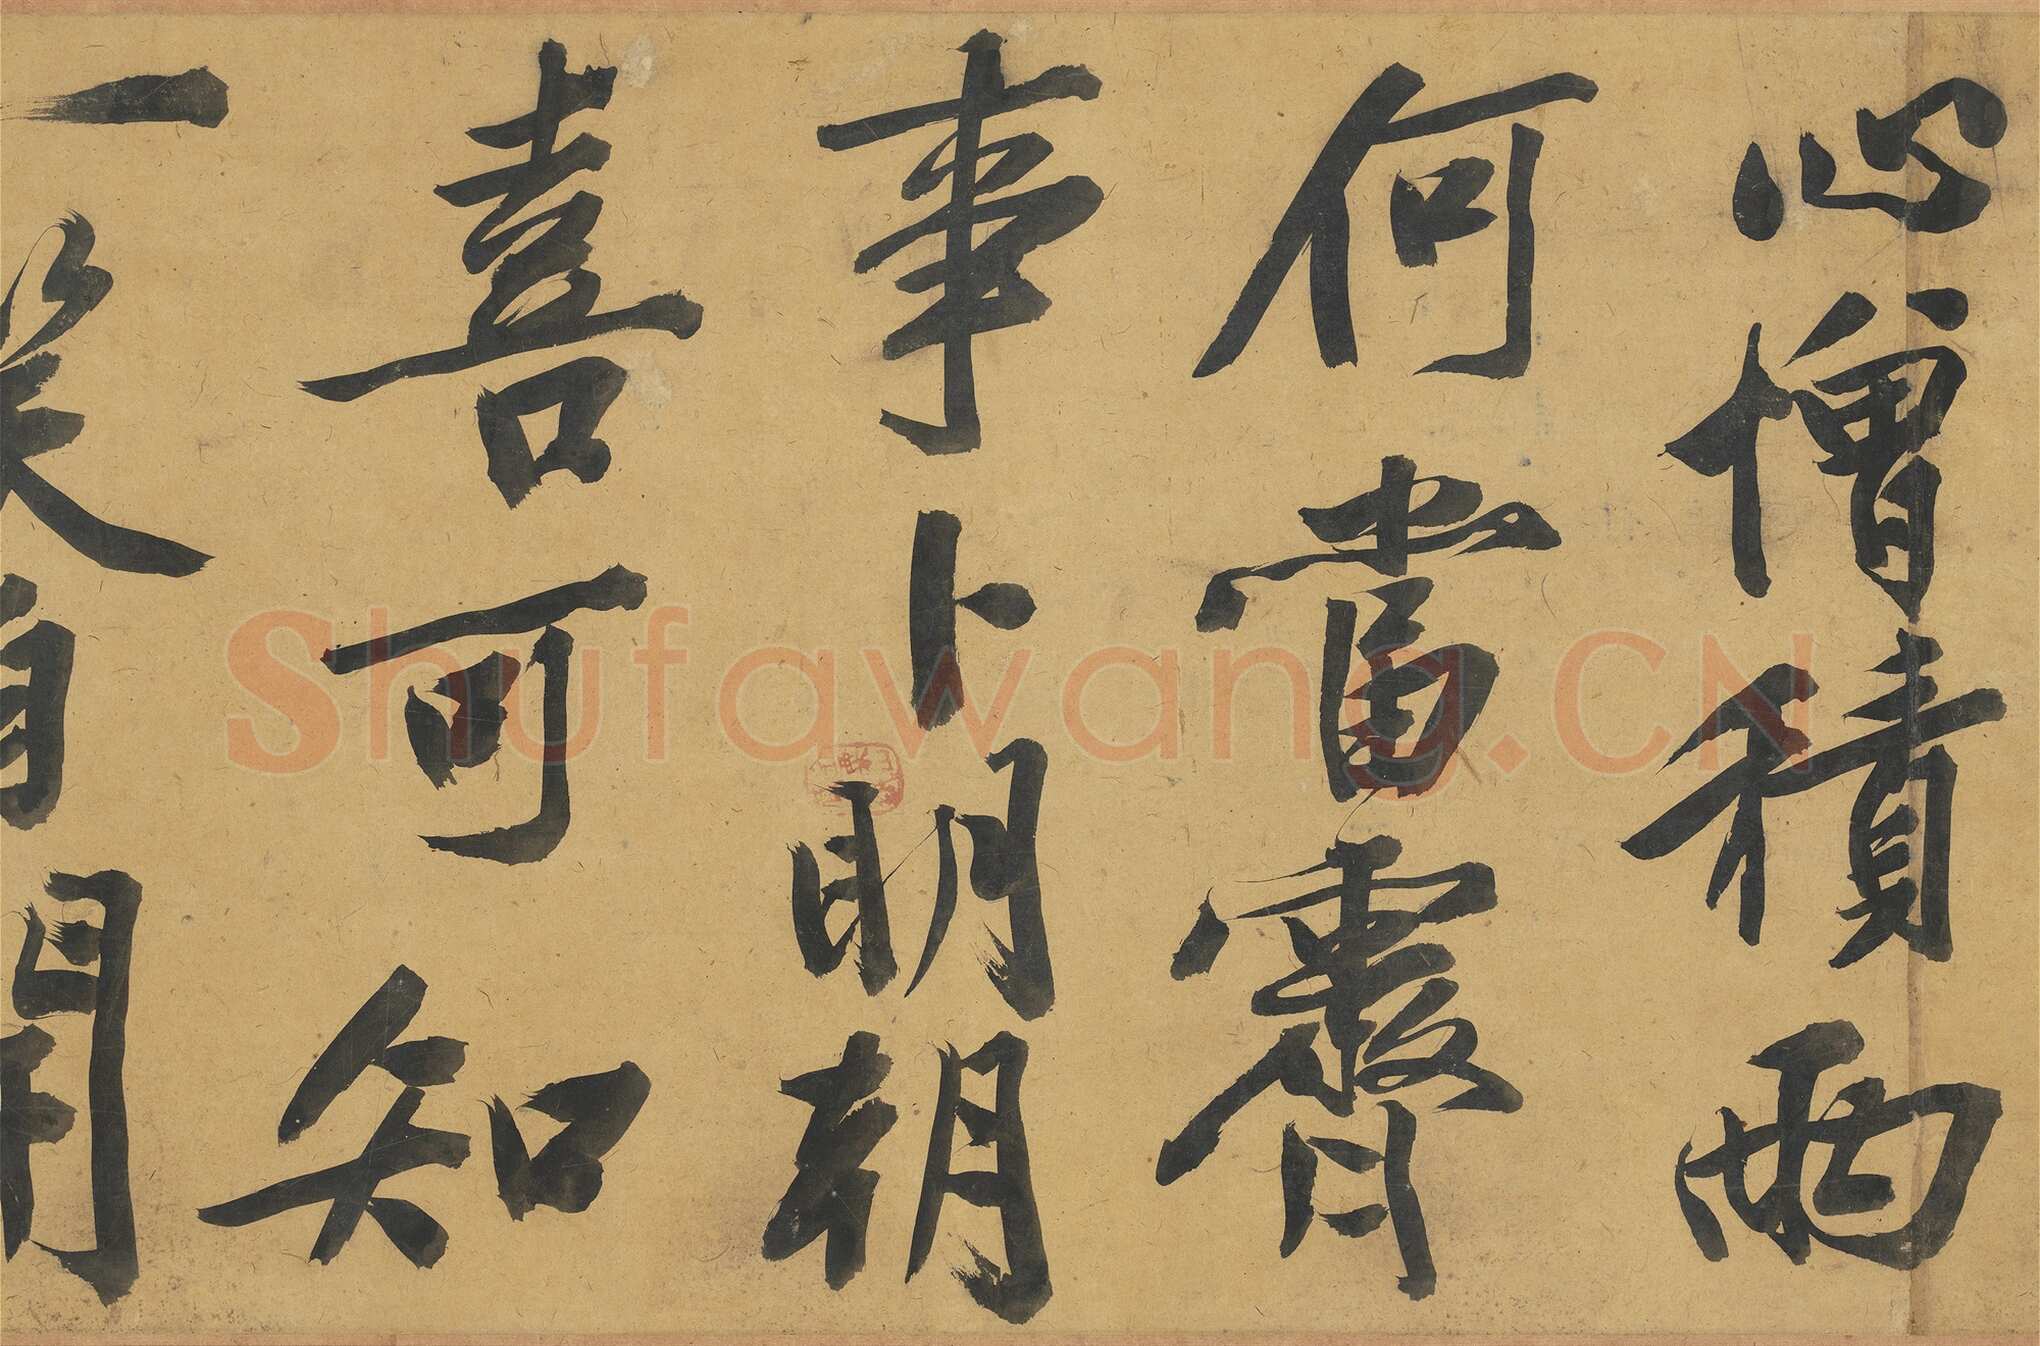 心憎積雨
何當霽
事卜明朝
喜可知
一笑相開
Shufawang.CN